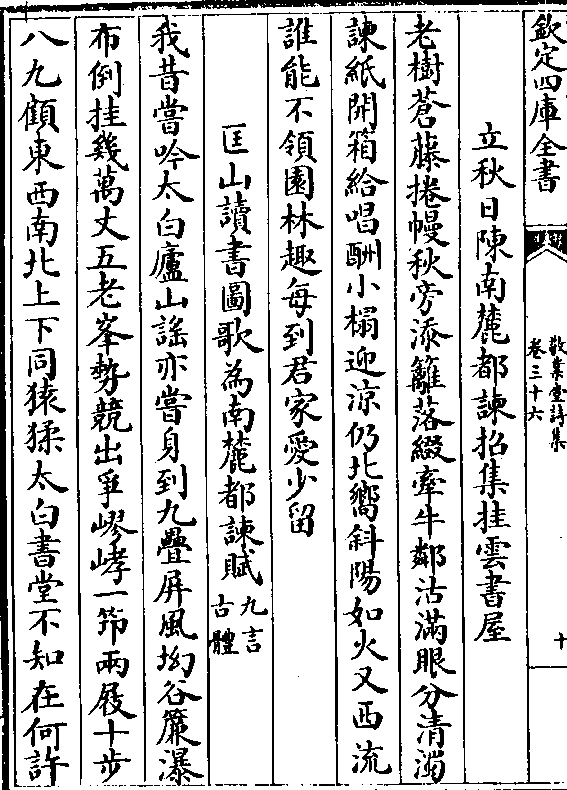 欽定四庫全書
敬業堂詩集
卷三十六
十
立秋日陳南麓都諫招集挂雲書屋
老樹蒼藤捲幔秋旁添籬落綴牽牛鄰沽滿眼分清濁
諫紙開箱給唱酬小榻迎涼仍北嚮斜陽如火又西流
誰能不領園林趣每到君家愛少留
匡山讀書圖歌為南麓都諫賦九言古體
我昔嘗吟太白廬山謠亦嘗身到九疊屏風坳谷簾瀑
布倒挂幾萬丈五老峯勢競出爭嵺㟉一笻兩屐十步
八九顧東西南北上下同猿猱太白書堂不知在何許